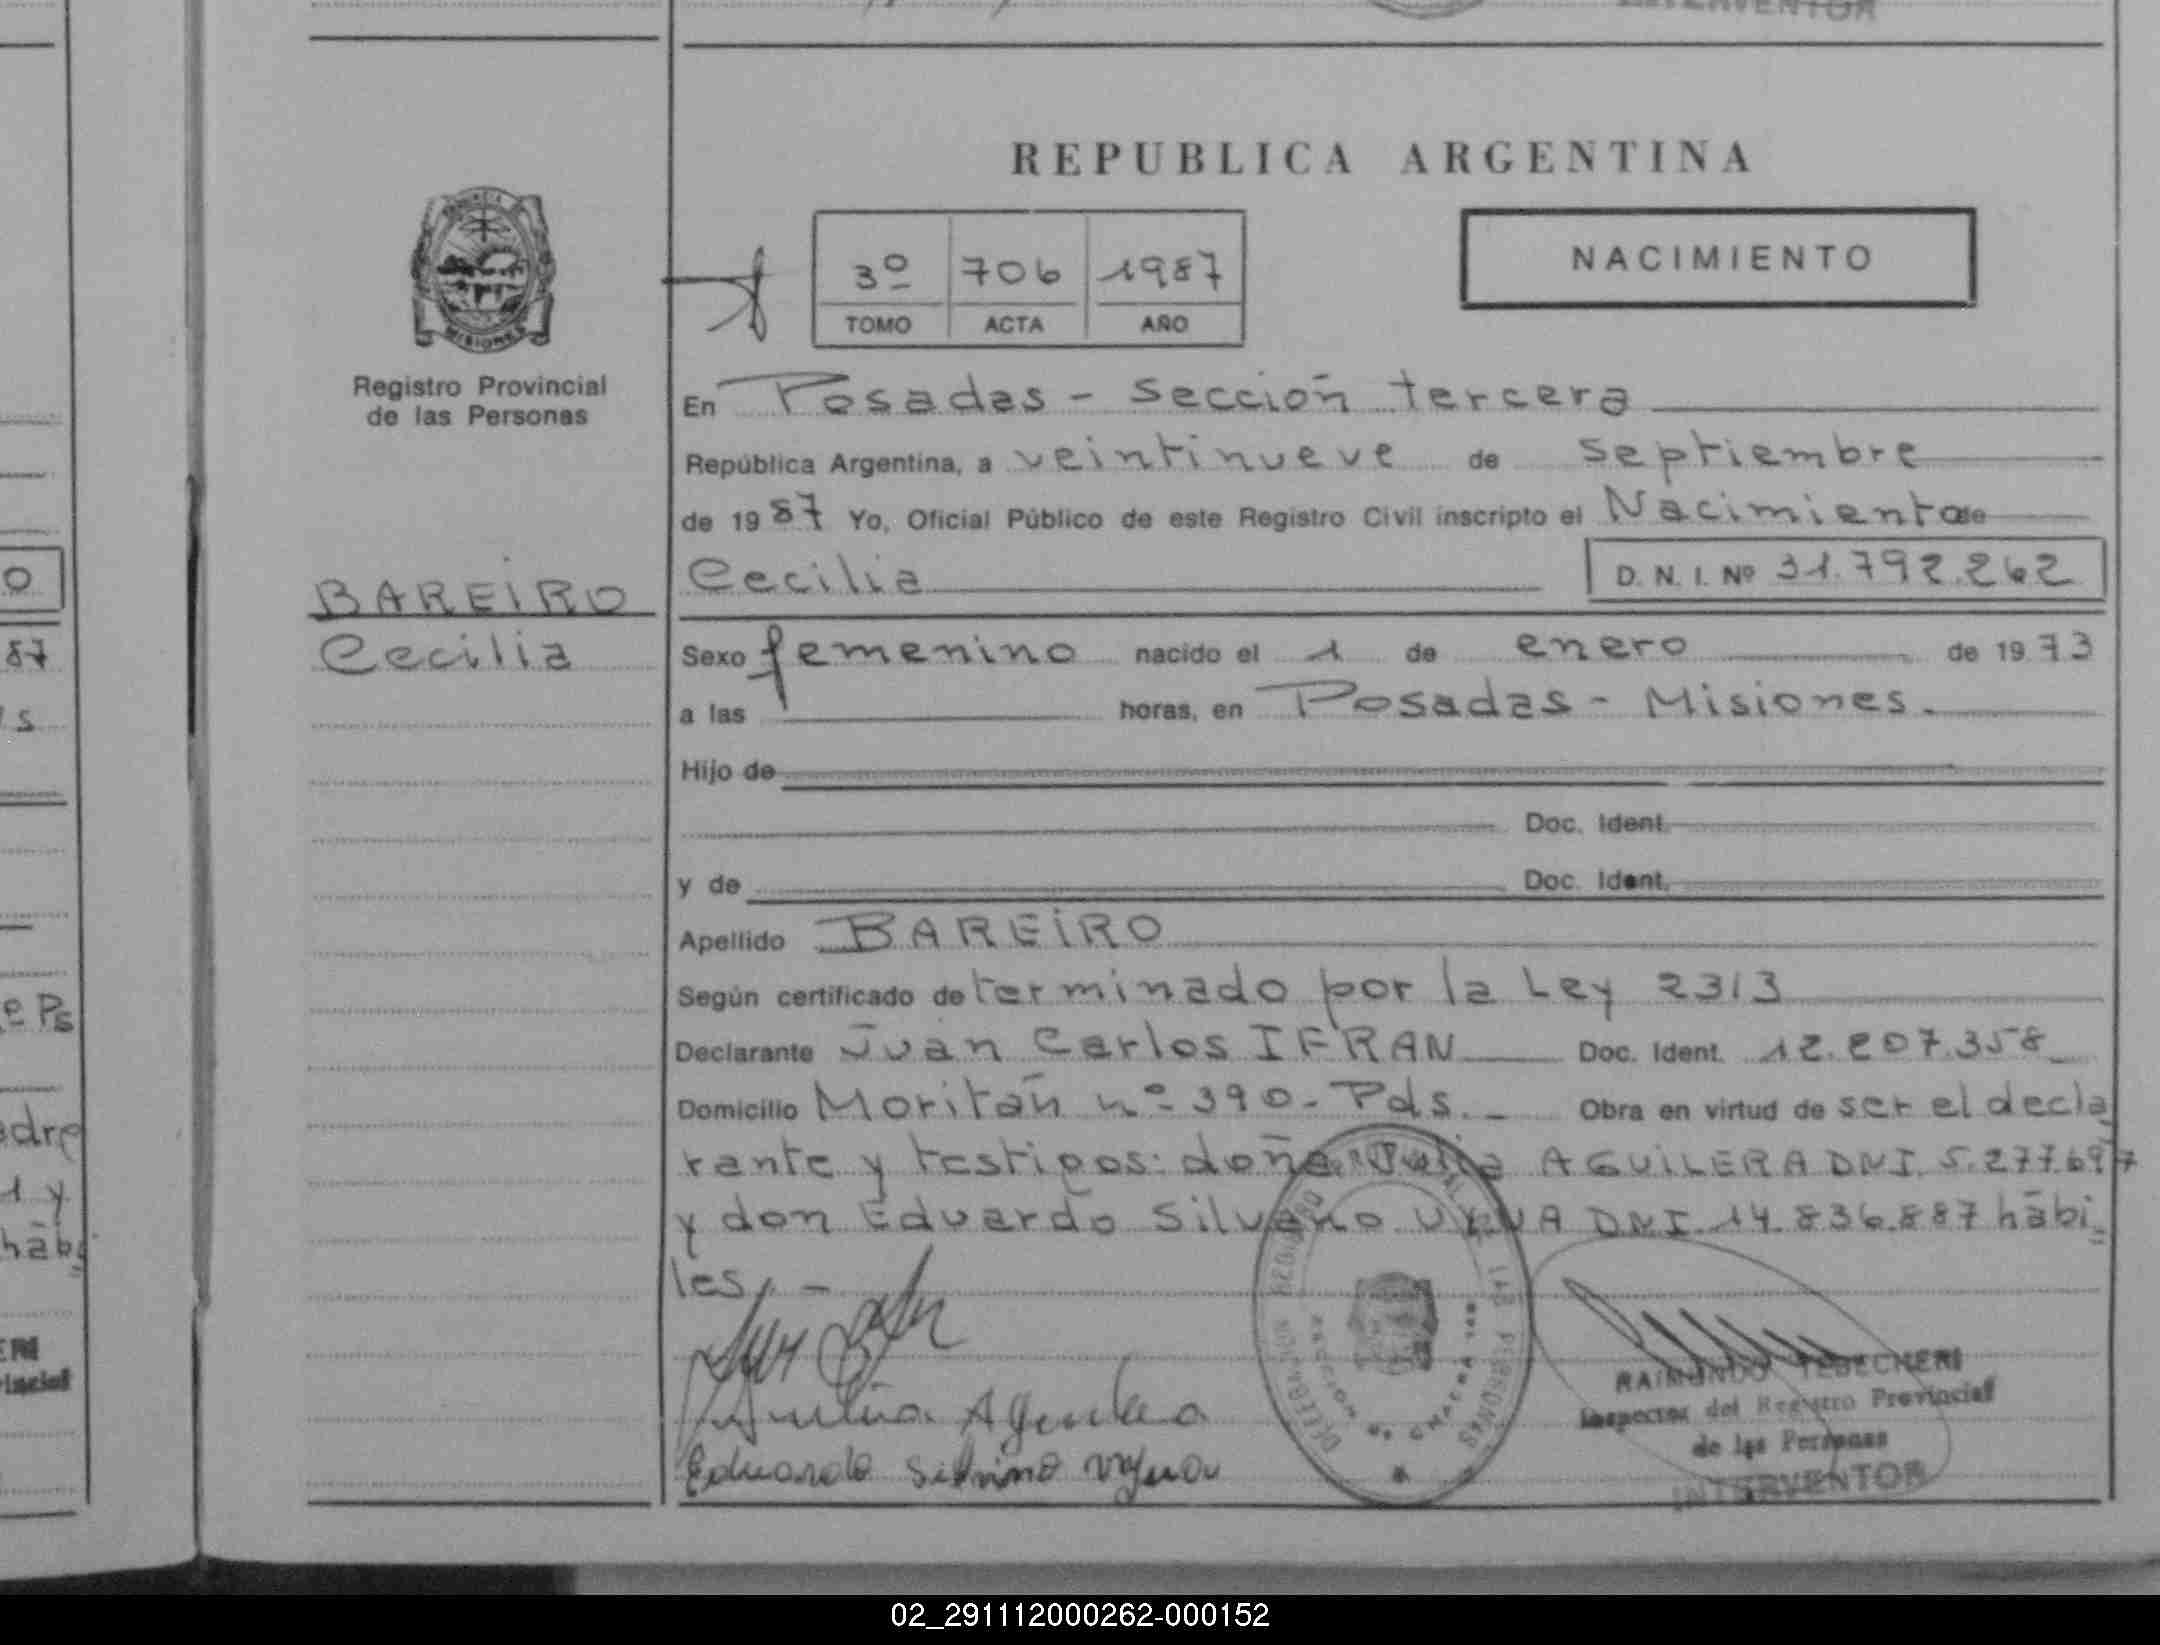 INTERVENTOR
REPUBLICA ARGENTINA
MISIONES
Registro Provincial
de las Personas
3º 706 1987
TOMO ACTA AÑO
NACIMIENTO
En Posadas - Sección tercera
República Argentina, a veintinueve de septiembre
de 1987 Yo, Oficial Público de este Registro Civil inscripto el Nacimiento de
BAREIRO
Cecilia
Cecilia D. N. I. Nº 31.792.262
Sexo femenino nacido el 1 de enero de 1973
a las horas, en Posadas - Misiones.
Hijo de
Doc. Ident.
y de Doc. Ident.
Apellido BAREIRO
Según certificado determinado por la Ley 2313
Declarante Juan Carlos IFRAN Doc. Ident. 12.207.358
Domicilio Moritán nº 390 - Pds. - Obra en virtud de ser el decla
rante y testigos: doña Julia AGUILERA DNI 5.277.697
y don Eduardo Silvano DNI 14.836.887 hábi
les, -
Aguilera
Eduardo
RAIMUNDO TEDECHERI
Inspector del Registro Provincial
de las Personas
INTERVENTOR
87
s
e Ps
adre
1 y
hábi
02_291112000262-000152